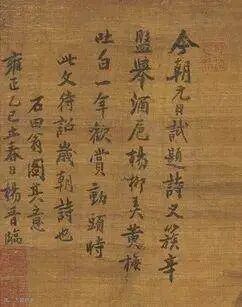 今朝元日試題詩又簇辛
盤舉酒卮楊柳弄黃梅
吐白一年歡賞動頭時
此文待詔歲朝詩也
石田翁圖其意
雍正乙巳立春日楊晉臨